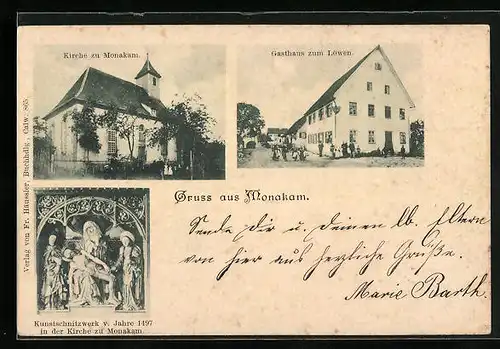 Kirche zu Monakam.
Gasthaus zum Löwen.
Verlag von Fr. Häussler, Buchhdlg., Calw. 865.
Gruss aus Monakam.
Sende Dir u. Deinen lb. Eltern
von hier aus herzliche Grüße.
Marie Barth.
Kunstschnitzwerk v. Jahre 1497
in der Kirche zu Monakam.